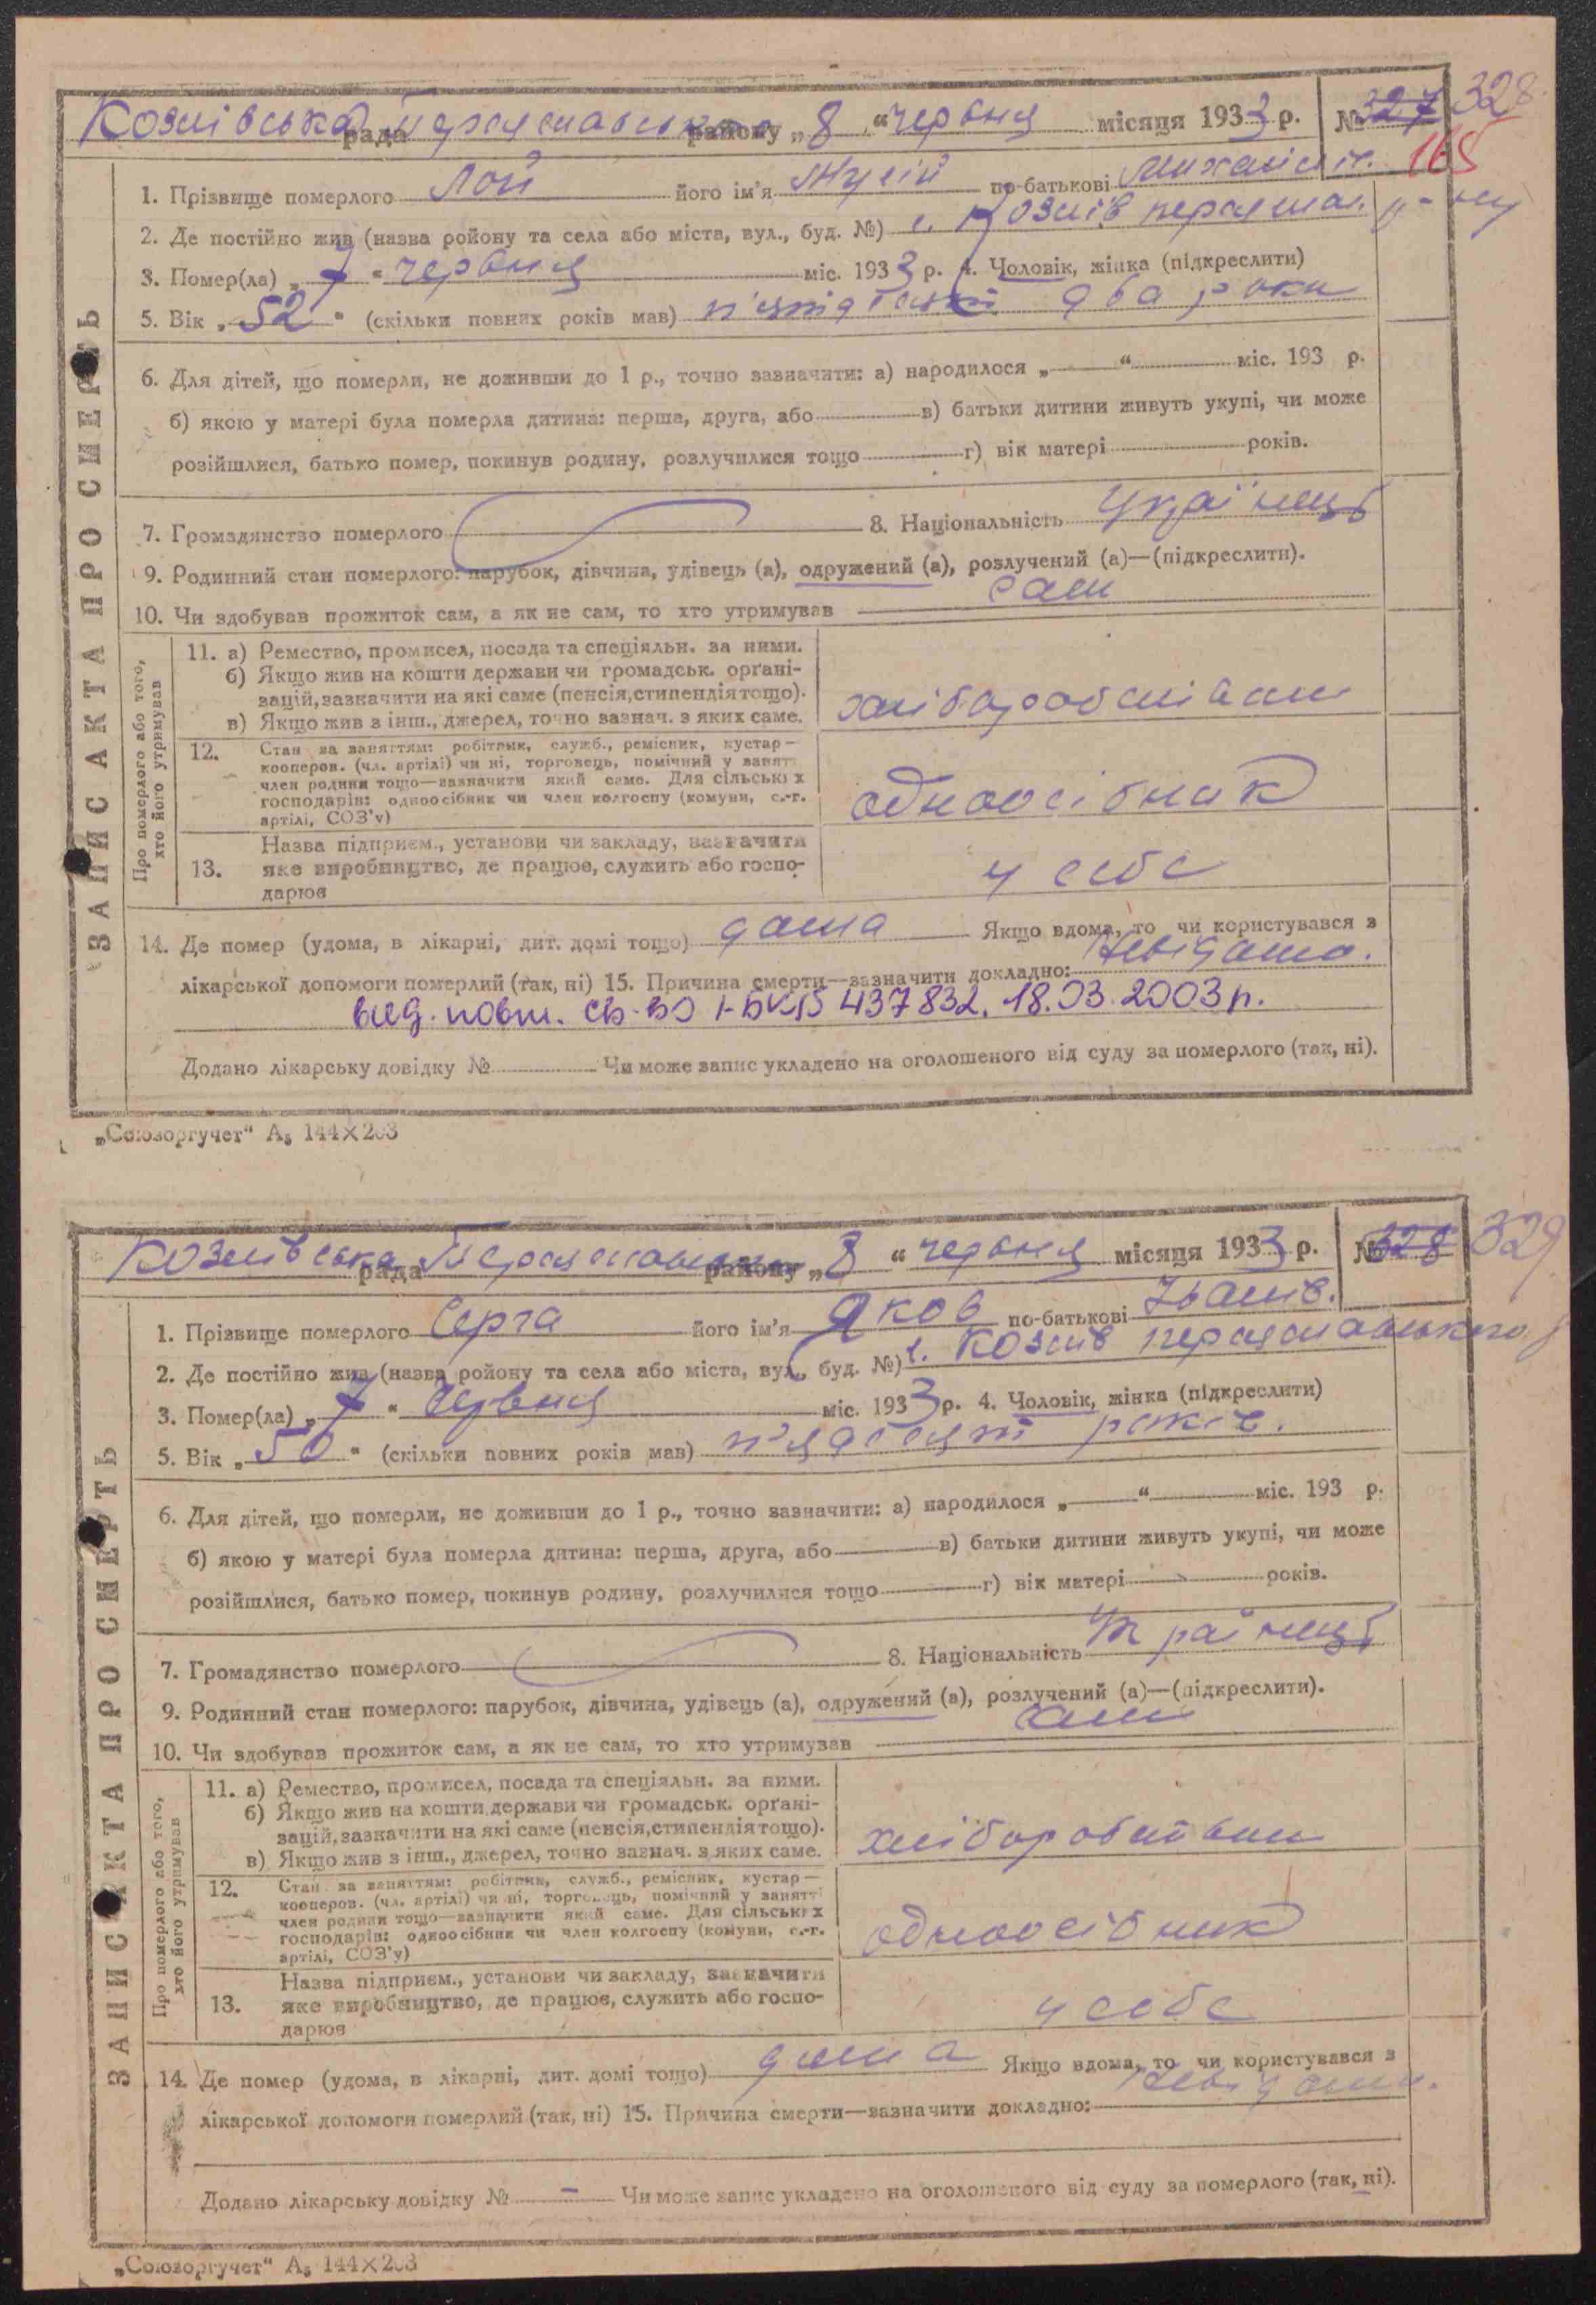 Козлівська рада Переяславського району „8“ червня місяця 1933 р. № 327 328
165
1. Прізвище померлого Лой його ім'я по-батькові Михайлів.
2. Де постійно жив (назва ройону та села або міста, вул., буд. №) с. Козлів переяслав. р-ну
3. Помер(ла) „7“ червня міс. 1933 р. 4. Чоловік, жінка (підкреслити)
5. Вік „52“ (скільки повних років мав) п'ятдесят два роки
6. Для дітей, що померли, не доживши до 1 р., точно зазначити: а) народилося „ “ міс. 193 р.
б) якою у матері була померла дитина: перша, друга, або в) батьки дитини живуть укупі, чи може
розійшлися, батько помер, покинув родину, розлучилися тощо г) вік матері років.
7. Громадянство померлого 8. Національність Українець
9. Родинний стан померлого: парубок, дівчина, удівець (а), одружений (а), розлучений (а)—(підкреслити).
10. Чи здобував прожиток сам, а як не сам, то хто утримував сам
ЗАПИС АКТА ПРО СМЕРТЬ
Про померлого або того,
хто його утримував
11. а) Ремество, промисел, посада та спеціяльн. за ними.
б) Якщо жив на кошти держави чи громадськ. орґані-
зацій, зазначити на які саме (пенсія, стипендія тощо).
в) Якщо жив з інш., джерел, точно зазнач. з яких саме.
хліборобством
12. Стан за заняттям: робітник, служб., ремісник, кустар—
кооперов. (чл. артілі) чи ні, торговець, помічний у занятт
член родини тощо—зазначити який саме. Для сільських
господарів: одноосібник чи член колгоспу (комуни, с.-г.
артілі, СОЗ'у)
одноосібник
13. Назва підприєм., установи чи закладу, зазначити
яке виробництво, де працює, служить або госпо-
дарює
у себе
14. Де помер (удома, в лікарні, дит. домі тощо) дома Якщо вдома, то чи користувався з
лікарської допомоги померлий (так, ні) 15. Причина смерти—зазначити докладно: Невідомо.
вид. повт. св-во І-БК 437832. 18.03.2003р.
Додано лікарську довідку № Чи може запис укладено на оголошеного від суду за померлого (так, ні).
„Союзоргучет“ А₅ 144×203
Козлівська рада Переяславського району „8“ червня місяця 1933 р. № 328 329
1. Прізвище померлого Серга його ім'я Яков по-батькові Іванів.
2. Де постійно жив (назва ройону та села або міста, вул., буд. №) с. Козлів переяславського р
3. Помер(ла) „7“ Червня міс. 1933 р. 4. Чоловік, жінка (підкреслити)
5. Вік „50“ (скільки повних років мав) п'ядесят років.
6. Для дітей, що померли, не доживши до 1 р., точно зазначити: а) народилося „ “ міс. 193 р.
б) якою у матері була померла дитина: перша, друга, або в) батьки дитини живуть укупі, чи може
розійшлися, батько помер, покинув родину, розлучилися тощо г) вік матері років.
7. Громадянство померлого 8. Національність Українець
9. Родинний стан померлого: парубок, дівчина, удівець (а), одружений (а), розлучений (а)—(підкреслити).
10. Чи здобував прожиток сам, а як не сам, то хто утримував сам
ЗАПИС АКТА ПРО СМЕРТЬ
Про померлого або того,
хто його утримував
11. а) Ремество, промисел, посада та спеціяльн. за ними.
б) Якщо жив на кошти держави чи громадськ. орґані-
зацій, зазначити на які саме (пенсія, стипендія тощо).
в) Якщо жив з інш., джерел, точно зазнач. з яких саме.
хліборобством
12. Стан за заняттям: робітник, служб., ремісник, кустар—
кооперов. (чл. артілі) чи ні, торговець, помічний у занятті
член родини тощо—зазначити який саме. Для сільських
господарів: одноосібник чи член колгоспу (комуни, с.-г.
артілі, СОЗ'у)
одноосібник
13. Назва підприєм., установи чи закладу, зазначити
яке виробництво, де працює, служить або госпо-
дарює
у себе
14. Де помер (удома, в лікарні, дит. домі тощо) дома Якщо вдома, то чи користувався з
лікарської допомоги померлий (так, ні) 15. Причина смерти—зазначити докладно: Невідомо.
Додано лікарську довідку № – Чи може запис укладено на оголошеного від суду за померлого (так, ні).
„Союзоргучет“ А₅ 144×203